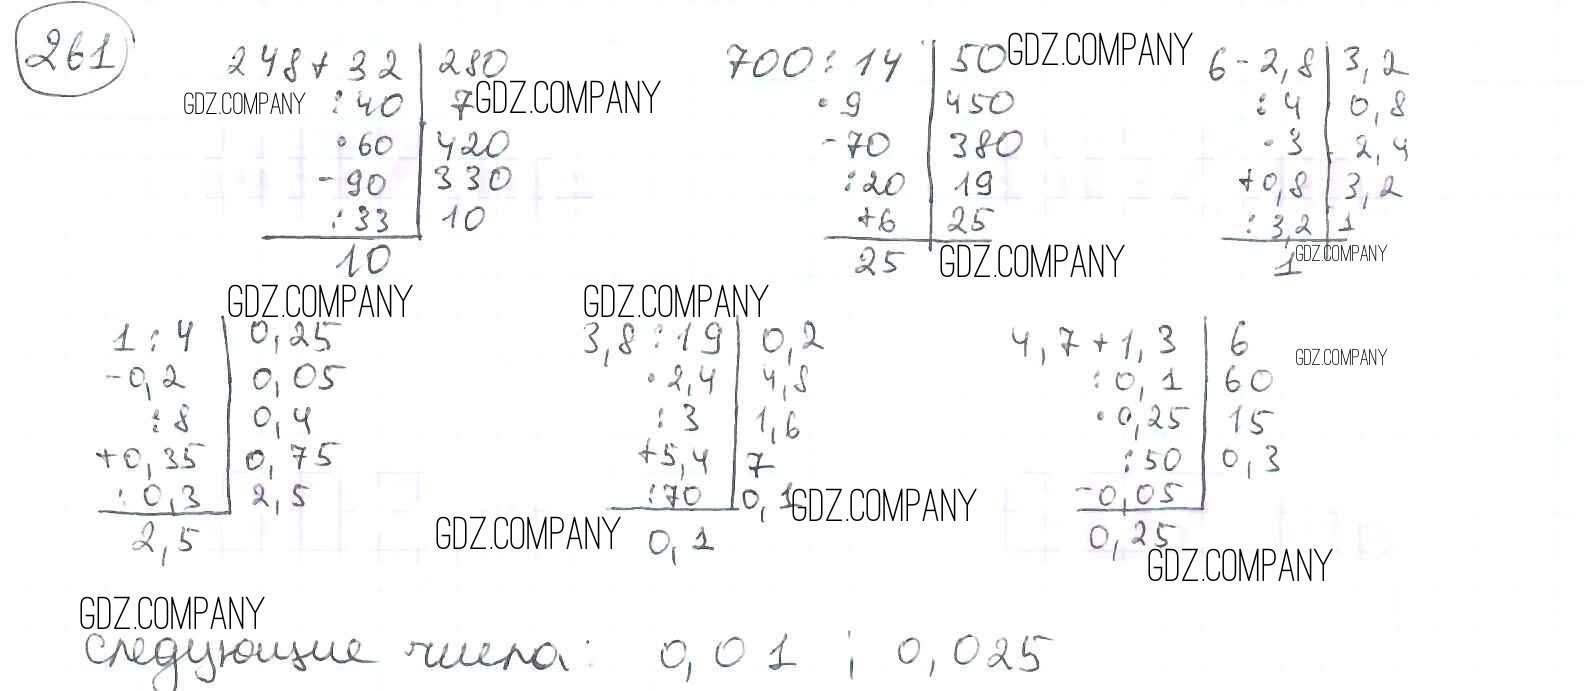 261
248 + 32 | 280
: 40 | 7
· 60 | 420
- 90 | 330
: 33 | 10
10
700 : 14 | 50
· 9 | 450
- 70 | 380
: 20 | 19
+ 6 | 25
25
6 - 2,8 | 3,2
: 4 | 0,8
· 3 | 2,4
+ 0,8 | 3,2
: 3,2 | 1
1
GDZ.COMPANY
GDZ.COMPANY
GDZ.COMPANY
GDZ.COMPANY
GDZ.COMPANY
GDZ.COMPANY
GDZ.COMPANY
1 : 4 | 0,25
- 0,2 | 0,05
: 8 | 0,4
+ 0,35 | 0,75
: 0,3 | 2,5
2,5
3,8 : 19 | 0,2
· 2,4 | 4,8
: 3 | 1,6
+ 5,4 | 7
: 70 | 0,1
0,1
4,7 + 1,3 | 6
: 0,1 | 60
· 0,25 | 15
: 50 | 0,3
- 0,05
0,25
GDZ.COMPANY
GDZ.COMPANY
GDZ.COMPANY
GDZ.COMPANY
GDZ.COMPANY
следующие числа: 0,01 ; 0,025